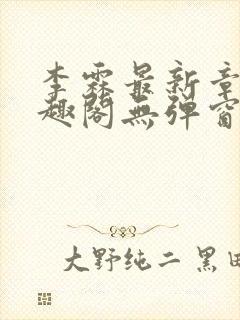 李霖最新章
趣阁无弹窗
大野纯二 黑田